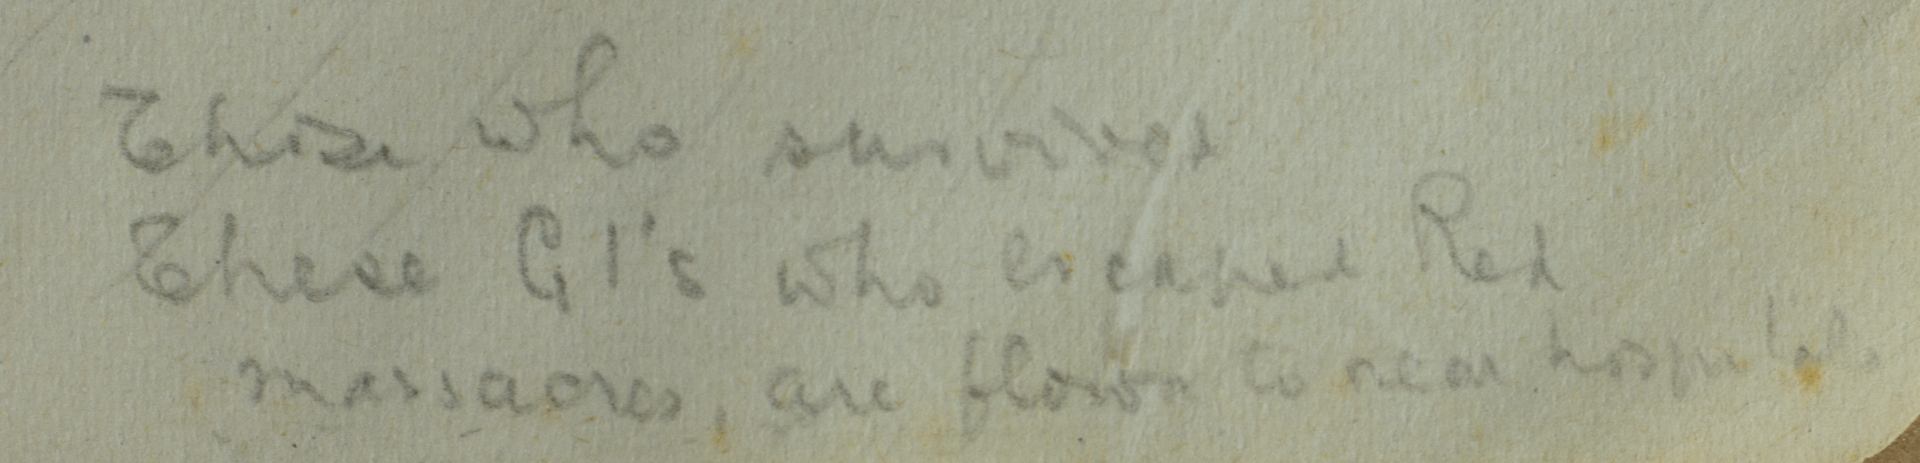 Those who survived
These GI's who escaped Red
massacres, are flown to near hospitals